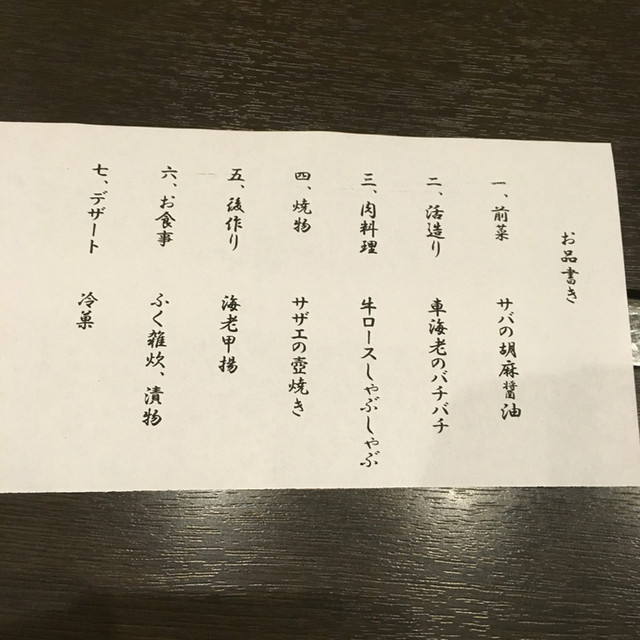 お品書き
一、前菜 サバの胡麻醤油
二、活造り 車海老のバチバチ
三、肉料理 牛ロースしゃぶしゃぶ
四、焼物 サザエの壺焼き
五、後作り 海老甲揚
六、お食事 ふく雑炊、漬物
七、デザート 冷菓